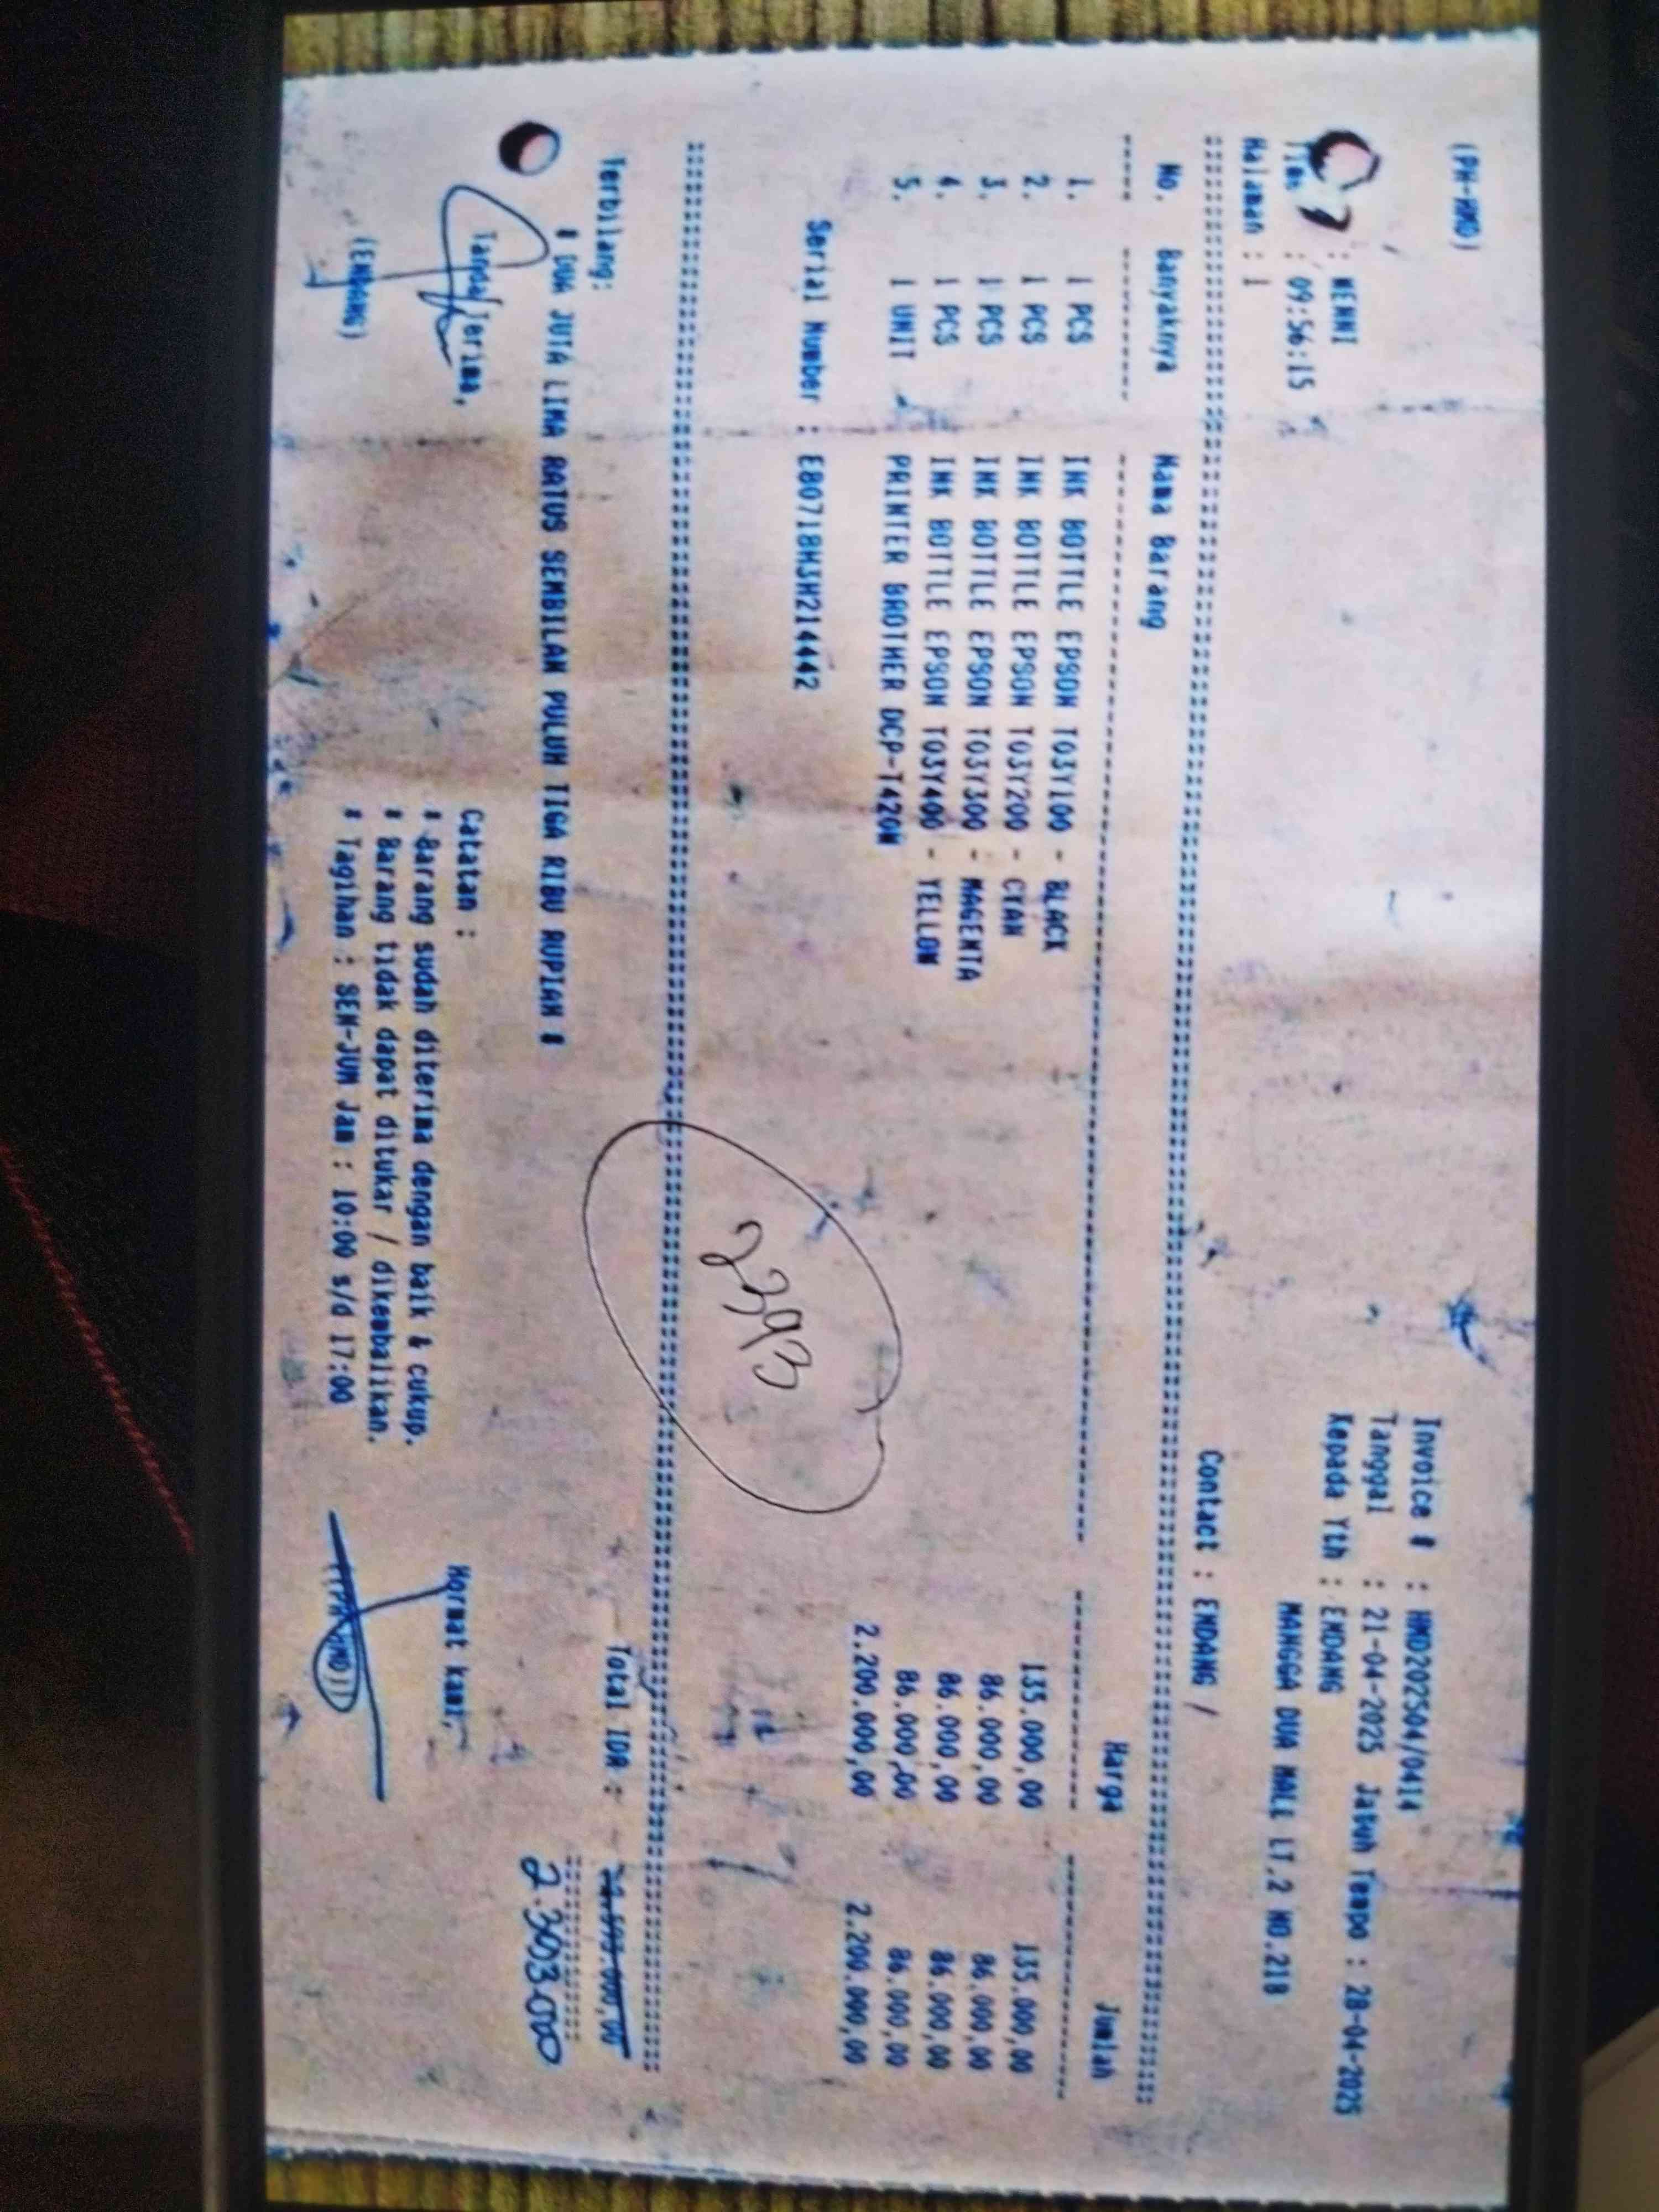 (PH-HMD)
: WENNI
: 09:56:15
Halaman : 1
Invoice # : HMD202504/0414
Tanggal : 21-04-2025 Jatuh Tempo : 28-04-2025
Kepada Yth : ENDANG
MANGGA DUA MALL LT.2 NO.21B
Contact : ENDANG /
No. Banyaknya Nama Barang Harga Jumlah
1. 1 PCS INK BOTTLE EPSON T03Y100 - BLACK 135.000,00 135.000,00
2. 1 PCS INK BOTTLE EPSON T03Y200 - CYAN 86.000,00 86.000,00
3. 1 PCS INK BOTTLE EPSON T03Y300 - MAGENTA 86.000,00 86.000,00
4. 1 PCS INK BOTTLE EPSON T03Y400 - YELLOW 86.000,00 86.000,00
5. 1 UNIT PRINTER BROTHER DCP-T420W 2.200.000,00 2.200.000,00
Serial Number : E80718H3H214442
Total IDR :
2.303.000
Terbilang:
# DUA JUTA LIMA RATUS SEMBILAN PULUH TIGA RIBU RUPIAH #
Tanda Terima,
(ENDANG)
Catatan :
# Barang sudah diterima dengan baik & cukup.
# Barang tidak dapat ditukar / dikembalikan.
# Tagihan : SEN-JUM Jam : 10:00 s/d 17:00
Hormat kami,